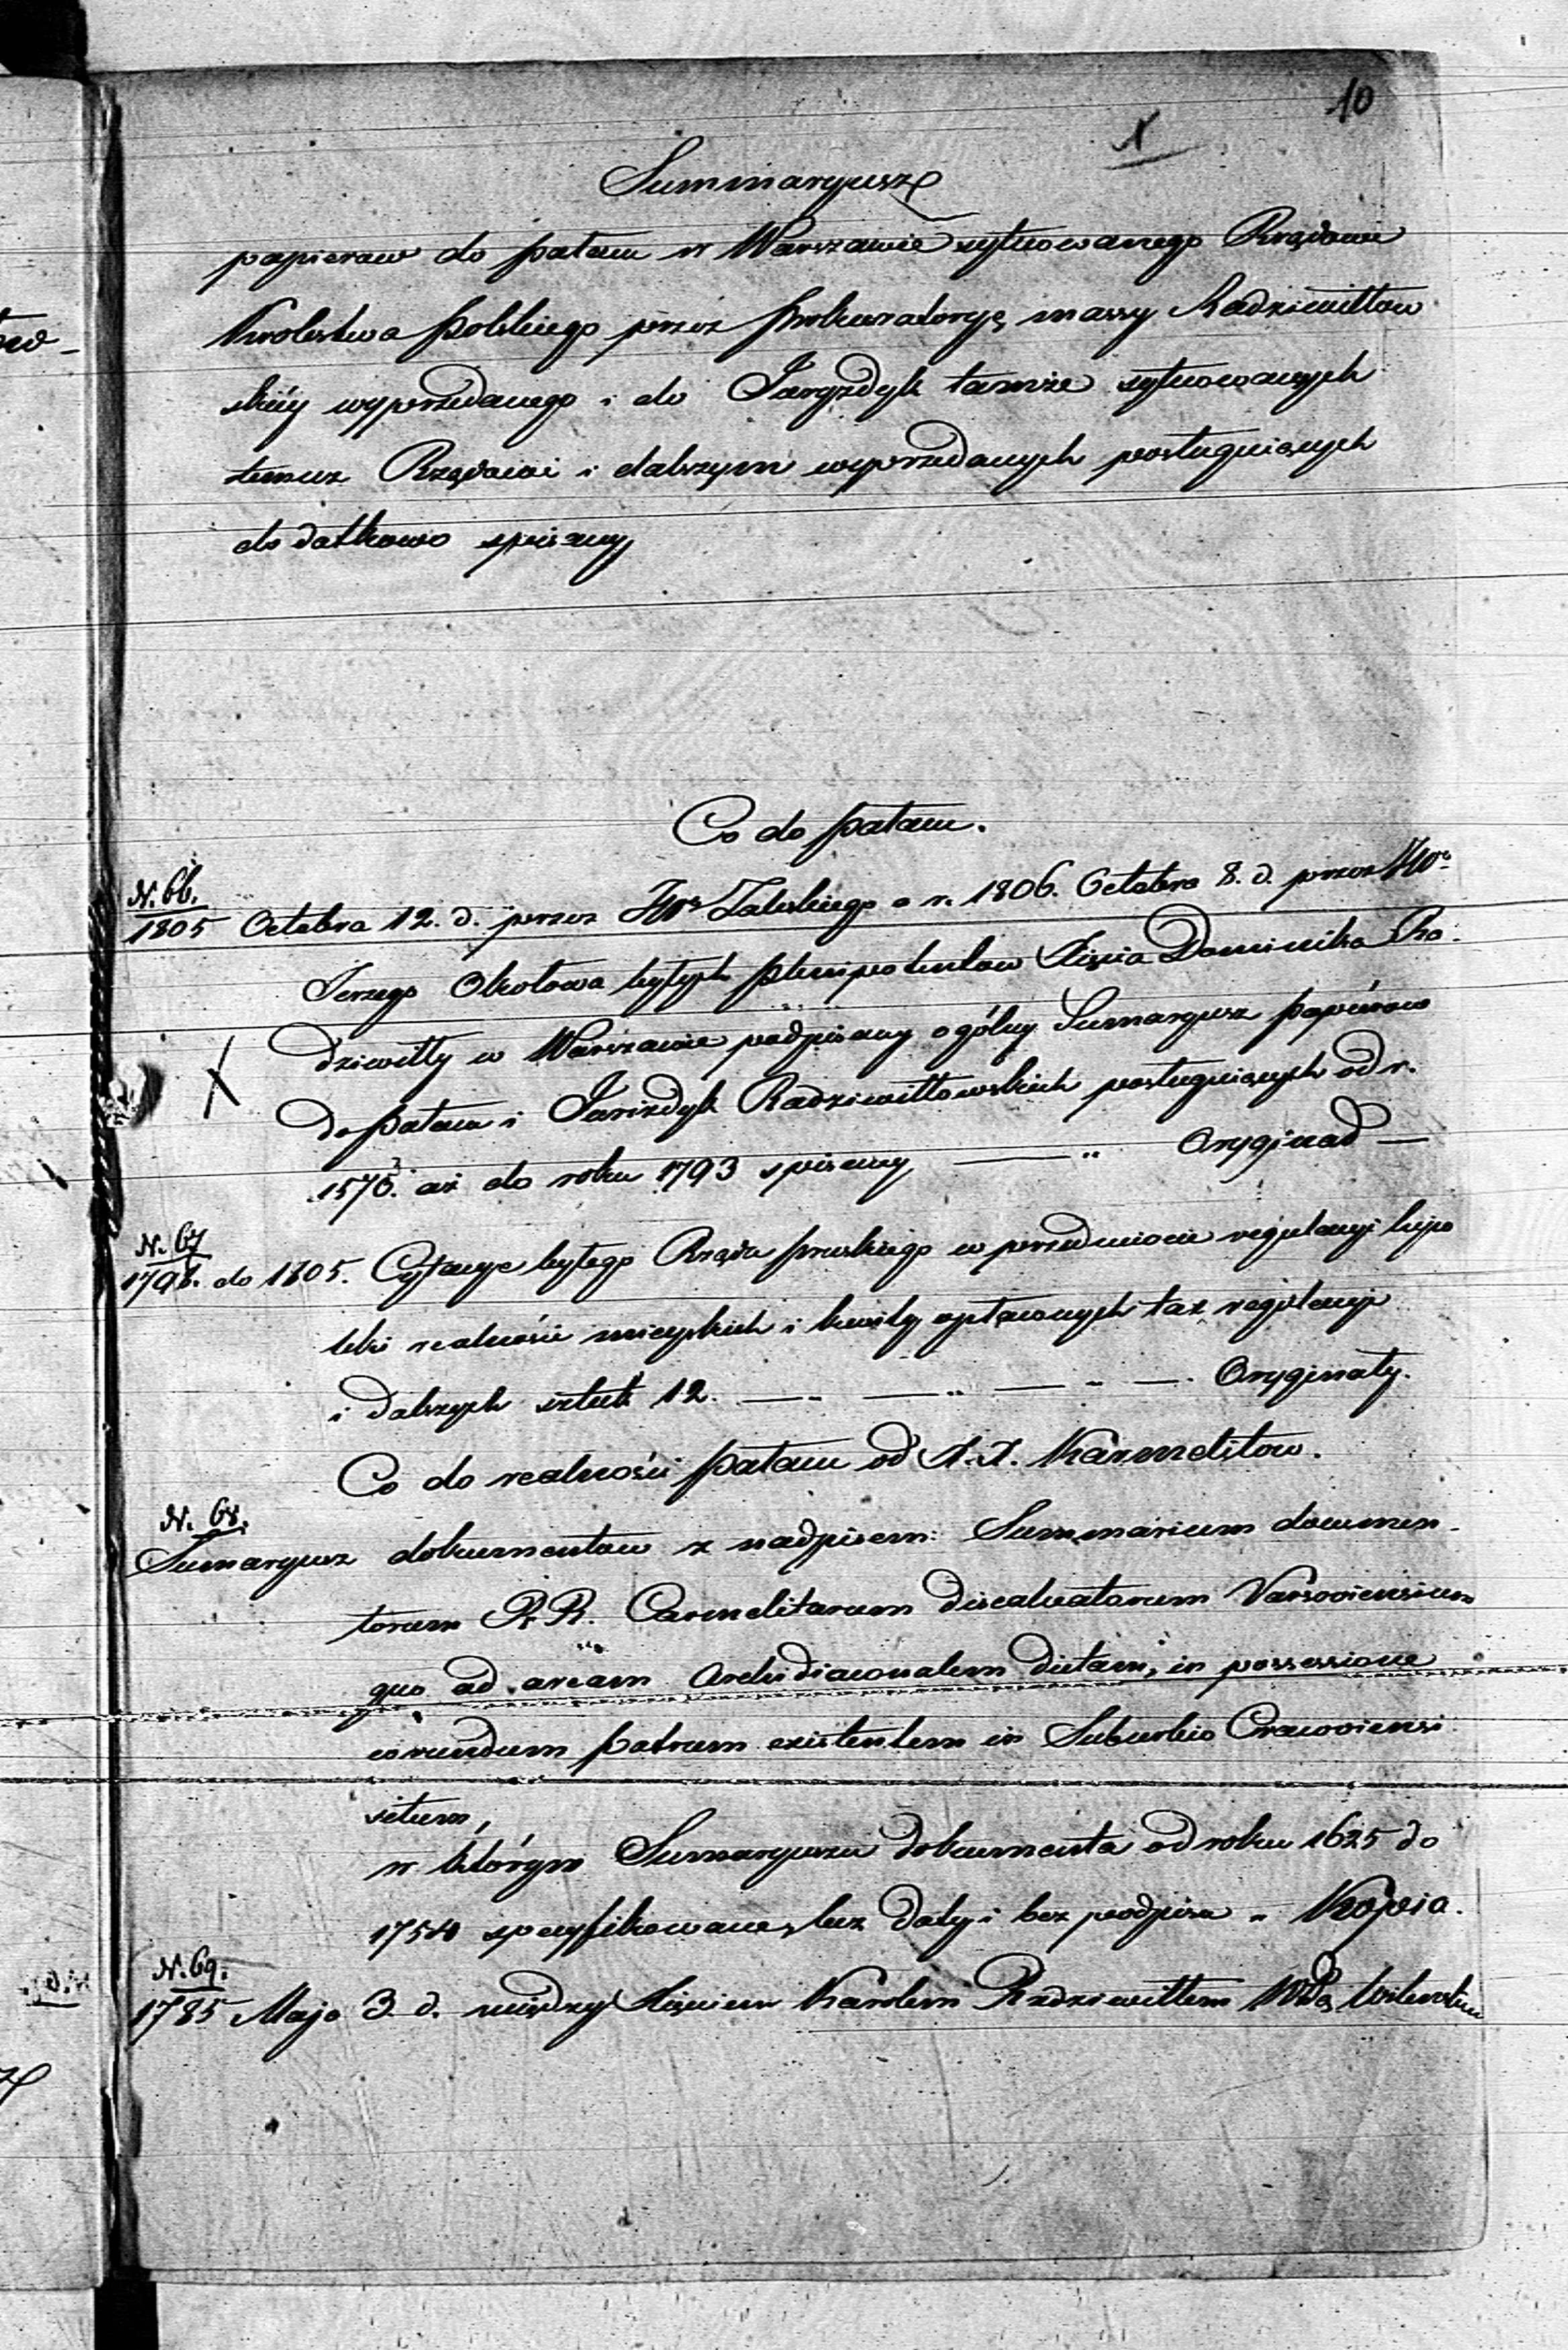 10
Summaryusz
papierow do pałacu w Warszawie sytuowanego Rządowi
Krolestwa polskiego przez prokuratoryę massy Radziwiłłow
skiey wyprzedanego i do Juryzdyk tamże sytuowanych
temuż Rządowi i dalszym wyprzedanych posługuiących
dodatkowo spisany
Co do pałacu.
N. 66.
1805 Octobra 12. d. przez Zaleskiego a r. 1806. Octobra 8. d. przez
Jerzego Okołowa byłych plenipotentow Xięcia Dominika Ra-
dziwiłły w Warszawie podpisany ogólny Sumaryusz papierow
do pałacu i Jurizdyk Radziwiłłowskich posługuiących od r.
aż do roku 1793 spisany — " Oryginał —
N. 67
do 1805. Cytacye byłego Rządu pruskiego w przedmiocie regulacyi hipo
teki realności mieyskich i kwity opłaconych tax regulacyi
i dalszych sztuk 12. — " — " — " — . Oryginały.
Co do realności pałacu od X.X. Karmelitow.
N. 68.
Sumaryusz dokumentow z nadpisem: Summarium documen-
torum R.R. Carmelitarum discalceatorum Varsoviensium
quo ad aream Archidiaconalem dictam, in possessione
eorundum patrum existentem in Suburbio Cracoviensi
situm,
w którym Sumaryuszu dokumenta od roku 1625 do
1754 specyfikowane, bez daty i bez podpisu " Kopia.
N. 69.
1785 Maja 3 d. między Xięciem Karolem Radziwiłłem Wdą Wileńskim